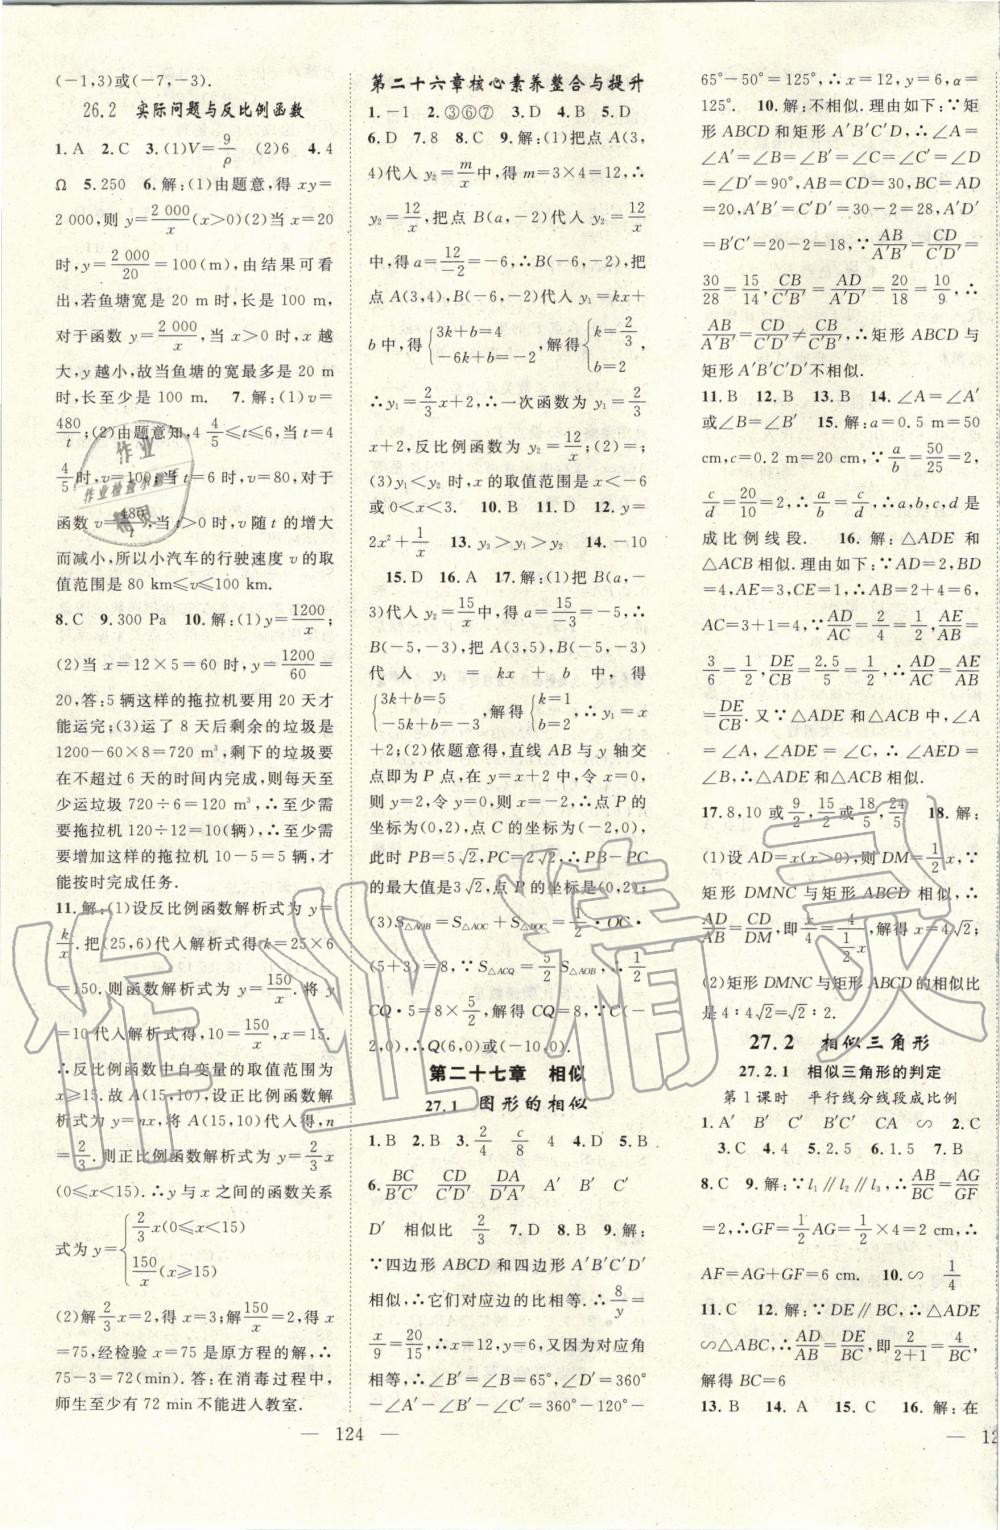 (-1,3)或(-7,-3).
26.2 实际问题与反比例函数
1.A 2.C 3.(1)V=9/ρ (2)6 4.4
Ω 5.250 6.解:(1)由题意,得 xy=
2 000,则 y=2 000/x(x>0)(2)当 x=20
时,y=2 000/20=100(m),由结果可看
出,若鱼塘宽是 20 m时,长是 100 m.
对于函数 y=2 000/x,当 x>0 时,x 越
大,y越小,故当鱼塘的宽最多是 20 m
时,长至少是 100 m. 7.解:(1)v=
480/t;(2)由题意知,4 4/5≤t≤6,当 t=4
4/5时,v=100;当 t=6 时,v=80,对于
函数 v=480/t,当 t>0 时,v 随 t 的增大
而减小,所以小汽车的行驶速度 v 的取
值范围是 80 km≤v≤100 km.
8.C 9.300 Pa 10.解:(1)y=1200/x;
(2)当 x=12×5=60 时,y=1200/60=
20,答:5 辆这样的拖拉机要用 20 天才
能运完;(3)运了 8 天后剩余的垃圾是
1200-60×8=720 m³,剩下的垃圾要
在不超过 6 天的时间内完成,则每天至
少运垃圾 720÷6=120 m³,∴至少需
要拖拉机 120÷12=10(辆),∴至少需
要增加这样的拖拉机 10-5=5(辆)才
能按时完成任务.
11.解:(1)设反比例函数解析式为 y=
k/x.把(25,6)代入解析式得 k=25×6
=150.则函数解析式为 y=150/x.将 y
=10 代入解析式得,10=150/x,x=15.
∴反比例函数中自变量的取值范围为
x≥15.故 A(15,10),设正比例函数解
析式为 y=nx,将 A(15,10)代入得,n
=2/3.则正比例函数解析式为 y=2/3x
(0≤x<15).∴y与 x 之间的函数关系
式为 y={2/3x(0≤x<15)
150/x(x≥15)
(2)解 2/3x=2,得 x=3;解150/x=2,得 x
=75,经检验 x=75 是原方程的解,∴
75-3=72(min).答:在消毒过程中,
师生至少有 72 min 不能进入教室.
第二十六章核心素养整合与提升
1.-1 2.③⑥⑦ 3.D 4.B 5.D
6.D 7.8 8.C 9.解:(1)把点 A(3,
4)代入 y₂=m/x中,得 m=3×4=12,∴
y₂=12/x,把点 B(a,-2)代入 y₂=12/x
中,得 a=12/-2=-6,∴B(-6,-2),把
点 A(3,4),B(-6,-2)代入 y₁=kx+
b中,得{3k+b=4 -6k+b=-2,解得{k=2/3 b=2
∴y₁=2/3x+2,∴一次函数为 y₁=2/3
x+2,反比例函数为 y₂=12/x;(2)6;
(3)y₁<y₂ 时,x 的取值范围是 x<-6
或 0<x<3. 10.B 11.D 12.y=
2x²+1/x 13.y₃>y₁>y₂ 14.-10
15.D 16.A 17.解:(1)把 B(a,-
3)代入 y₂=15/x中,得 a=15/-3=-5,∴
B(-5,-3),把 A(3,5),B(-5,-3)
代入 y₁=kx+b 中,得
{3k+b=5 -5k+b=-3,解得{k=1 b=2,∴y₁=x
+2;(2)依题意得,直线 AB 与 y 轴交
点即为 P 点,在 y=x+2 中,令 x=0,
则 y=2,令 y=0,则 x=-2,∴点 P 的
坐标为(0,2),点 C 的坐标为(-2,0),
此时 PB=5√2,PC=2√2,∴PB-PC
的最大值是3√2,点 P 的坐标是(0,2);
(3)S△AOB=S△AOC+S△BOC=1/2·OC·
(5+3)=8,∵S△ACQ=5/2S△AOB,∴1/2
CQ·5=8×5/2,解得 CQ=8,∵C(-
2,0),∴Q(6,0)或(-10,0).
第二十七章 相似
27.1 图形的相似
1.B 2.B 3.2/4 c/8 4 4.D 5.B
6.BC/B′C′ CD/C′D′ DA/D′A′ A′ B′ C′
D′ 相似比 2/3 7.D 8.B 9.解:
∵四边形 ABCD 和四边形 A′B′C′D′
相似,∴它们对应边的比相等.∴8/y=
x/9=20/15,∴x=12,y=6,又因为对应角
相等,∴∠B′=∠B=65°,∠D′=360°
-∠A′-∠B′-∠C′=360°-120°-
65°-50°=125°,∴x=12,y=6,α=
125°. 10.解:不相似.理由如下:∵矩
形 ABCD 和矩形 A′B′C′D′,∴∠A=
∠A′=∠B=∠B′=∠C=∠C′=∠D
=∠D′=90°,AB=CD=30,BC=AD
=20,A′B′=C′D′=30-2=28,A′D′
=B′C′=20-2=18,∵AB/A′B′=CD/C′D′=
30/28=15/14,CB/C′B′=AD/A′D′=20/18=10/9,∴
AB/A′B′=CD/C′D′≠CB/C′B′,∴矩形 ABCD 与
矩形 A′B′C′D′不相似.
11.B 12.B 13.B 14.∠A=∠A′
或∠B=∠B′ 15.解:a=0.5 m=50
cm,c=0.2 m=20 cm.∵a/b=50/25=2,
c/d=20/10=2,∴a/b=c/d,∴a、b、c、d 是
成比例线段. 16.解:△ADE 和
△ACB相似.理由如下:∵AD=2,BD
=4,AE=3,CE=1,∴AB=2+4=6,
AC=3+1=4,∵AD/AC=2/4=1/2,AE/AB=
3/6=1/2,DE/CB=2.5/5=1/2,∴AD/AC=AE/AB
=DE/CB.又∵△ADE 和△ACB 中,∠A
=∠A,∠ADE=∠C,∴∠AED=
∠B,∴△ADE 与△ACB 相似.
17.8,10 或9/2,15/2或18/5,24/5 18.解:
(1)设 AD=x(x>0),则 DM=1/2x,∵
矩形 DMNC 与矩形 ABCD 相似,∴
AD/AB=CD/DM,即x/4=4/(1/2x),解得 x=4√2;
(2)矩形 DMNC 与矩形 ABCD 的相似比
是 4∶4√2=√2∶2.
27.2 相似三角形
27.2.1 相似三角形的判定
第 1 课时 平行线分线段成比例
1.A′ B′ C′ B′C′ CA ∽ 2.C
3.C 4.5 5.2.5 6.1.5 7.B
8.C 9.解:∵l₁∥l₂∥l₃,∴AB/BC=AG/GF
=2,∴GF=1/2AG=1/2×4=2 cm,∴
AF=AG+GF=6 cm. 10.∽ 1/4
11.C 12.解:∵DE∥BC,∴△ADE
∽△ABC,∴AD/AB=DE/BC,即2/(2+1)=4/BC,
解得 BC=6
13.B 14.A 15.C 16.解:在
— 124 —
— 12
作业精灵
作业
作业检查小助手
精灵